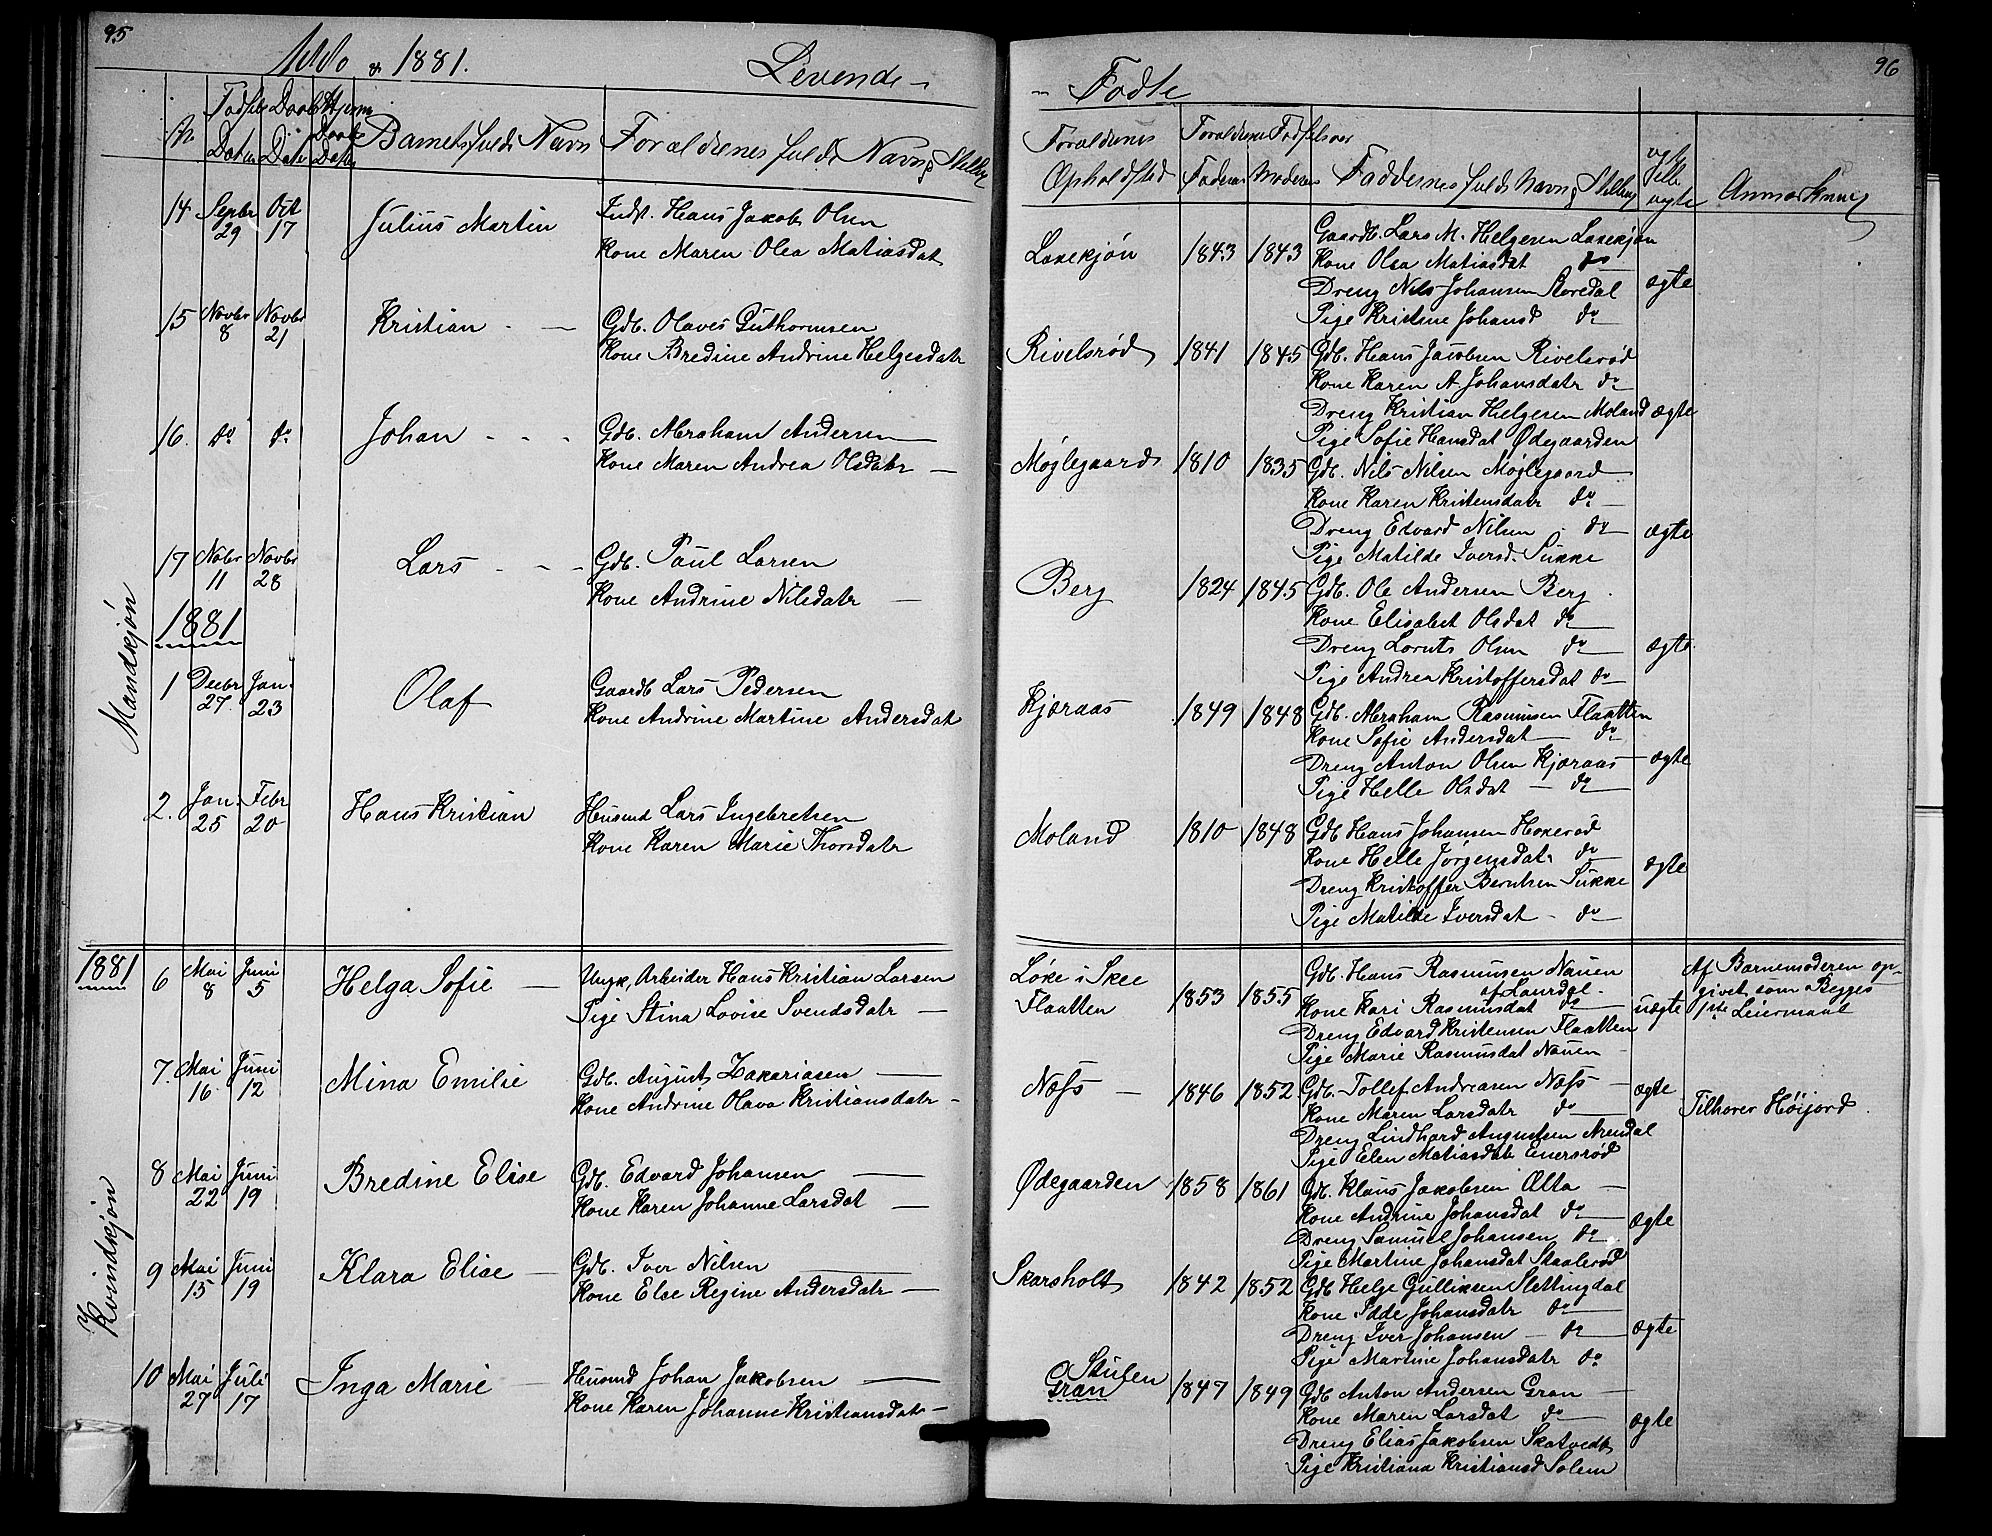 95
1880 & 1881.
Levende -
No
Fødsels Datum
Daabs Datum
Hjemmedaabs Datum
Barnets fulde Navn
Forældrenes fulde Navn & Stilling
Mandkjøn
14 Septbr 29 Oct 17 Julius Martin
Indst. Hans Jakob Olsen
Kone Maren Olea Matiasdat
15 Novbr 8 Novbr 21 Kristian - -
Gdb. Olaves Guthormsen
Kone Bredine Andrine Helgesdatr
16. do do Johan - - -
Gdb. Abraham Andersen
Kone Maren Andrea Olsdatr -
17 Nobr 11 Novbr 28 Lars - - -
Gdb. Paul Larsen
Kone Andrine Nilsdatr -
1881
1 Decbr 27 Jan. 23 Olaf
Gaardb. Lars Pedersen
Kone Andrine Martine Andersdat
2. Jan. 25 Febr 20 Hans Kristian
Husmd Lars Ingebretsen
Kone Karen Marie Thorsdatr
1881
Kvindkjøn
6 Mai 8 Juni 5 Helga Sofie -
Ungk. Arbeider Hans Kristian Larsen
Pige Stina Lovise Svendsdatr -
7. Mai 16 Juni 12 Mina Emilie
Gdb. August Zakariasen -
Kone Andrine Olava Kristiansdatr -
8 Mai 22 Juni 19 Bredine Elise
Gdb. Edvard Johansen -
Kone Karen Johanne Larsdat -
9 Mai 15 Juni 19 Klara Elise -
Gdb. Iver Nilsen
Kone Else Regine Andersdatr -
10 Mai 27 Juli 17 Inga Marie -
Husmd Johan Jakobsen -
Kone Karen Johanne Kristiansdatr -
96
- Fødte
Forældrenes Opholdsted
Forældrenes Fødselsaar
Faderens
Moderens
Faddernes fulde Navn & Stilling
ægte eller uægte
Anmærkning
Laxekjøn 1843 1843
Gaardb. Lars M. Helgesen Laxekjøn
Kone Olea Matiasdat do
Dreng Nils Johansen Boredal
Pige Kristine Johansd do
ægte
Rivelsrød 1841 1845
Gdb. Hans Jacobsen Rivelsrød
Kone Karen A. Johansdatr do
Dreng Kristian Helgesen Moland
Pige Sofie Hansdat Ødegaarden
ægte
Møglegaard 1810 1835
Gdb. Nils Nilsen Møglegaard
Kone Karen Kristensdatr do -
Dreng Edvard Nilsen - do -
Pige Matilde Iversd. Sukke
ægte
Berg 1824 1845
Gdb. Ole Andersen Berg.
Kone Elisabet Olsdat do
Dreng Lorents Olsen do
Pige Andrea Kristoffersdat do
ægte
Kjæraas 1849 1848
Gdb. Abraham Rasmusen Flaatten
Kone Sofie Andersdat - do
Dreng Anton Olsen Kjæraas
Pige Helle Olsdat - do
ægte
Moland 1810 1848
Gdb Hans Johansen Hoxerød
Kone Helle Jørgensdatr do
Dreng Kristoffer Berntsen Sukke
Pige Matilde Iversdat - do
ægte
Løke i Skee
Flaatten 1853 1855
Gdb. Hans Rasmusen Nauen
af Laurdal.
Kone Kari Rasmusdat do
Dreng Edvard Kristensen Flaatten
Pige Marie Rasmusdat Nauen -
uægte
Af Barnemoderen op-
givet som Begges
1ste Leiermaal
Næss - 1846 1852
Gdb. Tollef Andreasen Næss -
Kone Maren Larsdatr do
Dreng Lindhard Augustsen Arendal
Pige Elen Matiasdatr Einersrød
ægte
Tilhører Høijord.
Ødegaarden 1858 1861
Gdb. Klaus Jakobsen Ælta -
Kone Andrine Johansdat do
Dreng Samuel Johansen do
Pige Martine Johansdat Staalerød
ægte
Skarsholt 1842 1852
Gdb Helge Gulliksen Slettingdal
Kone Idde Johansdatr do
Dreng Iver Johansen - do
Pige Martine Johansdatr do
ægte
Stulen
Gran 1847 1849
Gdb Anton Andersen Gran -
Kone Maren Larsdat do
Dreng Elias Jakobsen Skatvedt
Pige Kristiana Kristiansd Solem
ægte